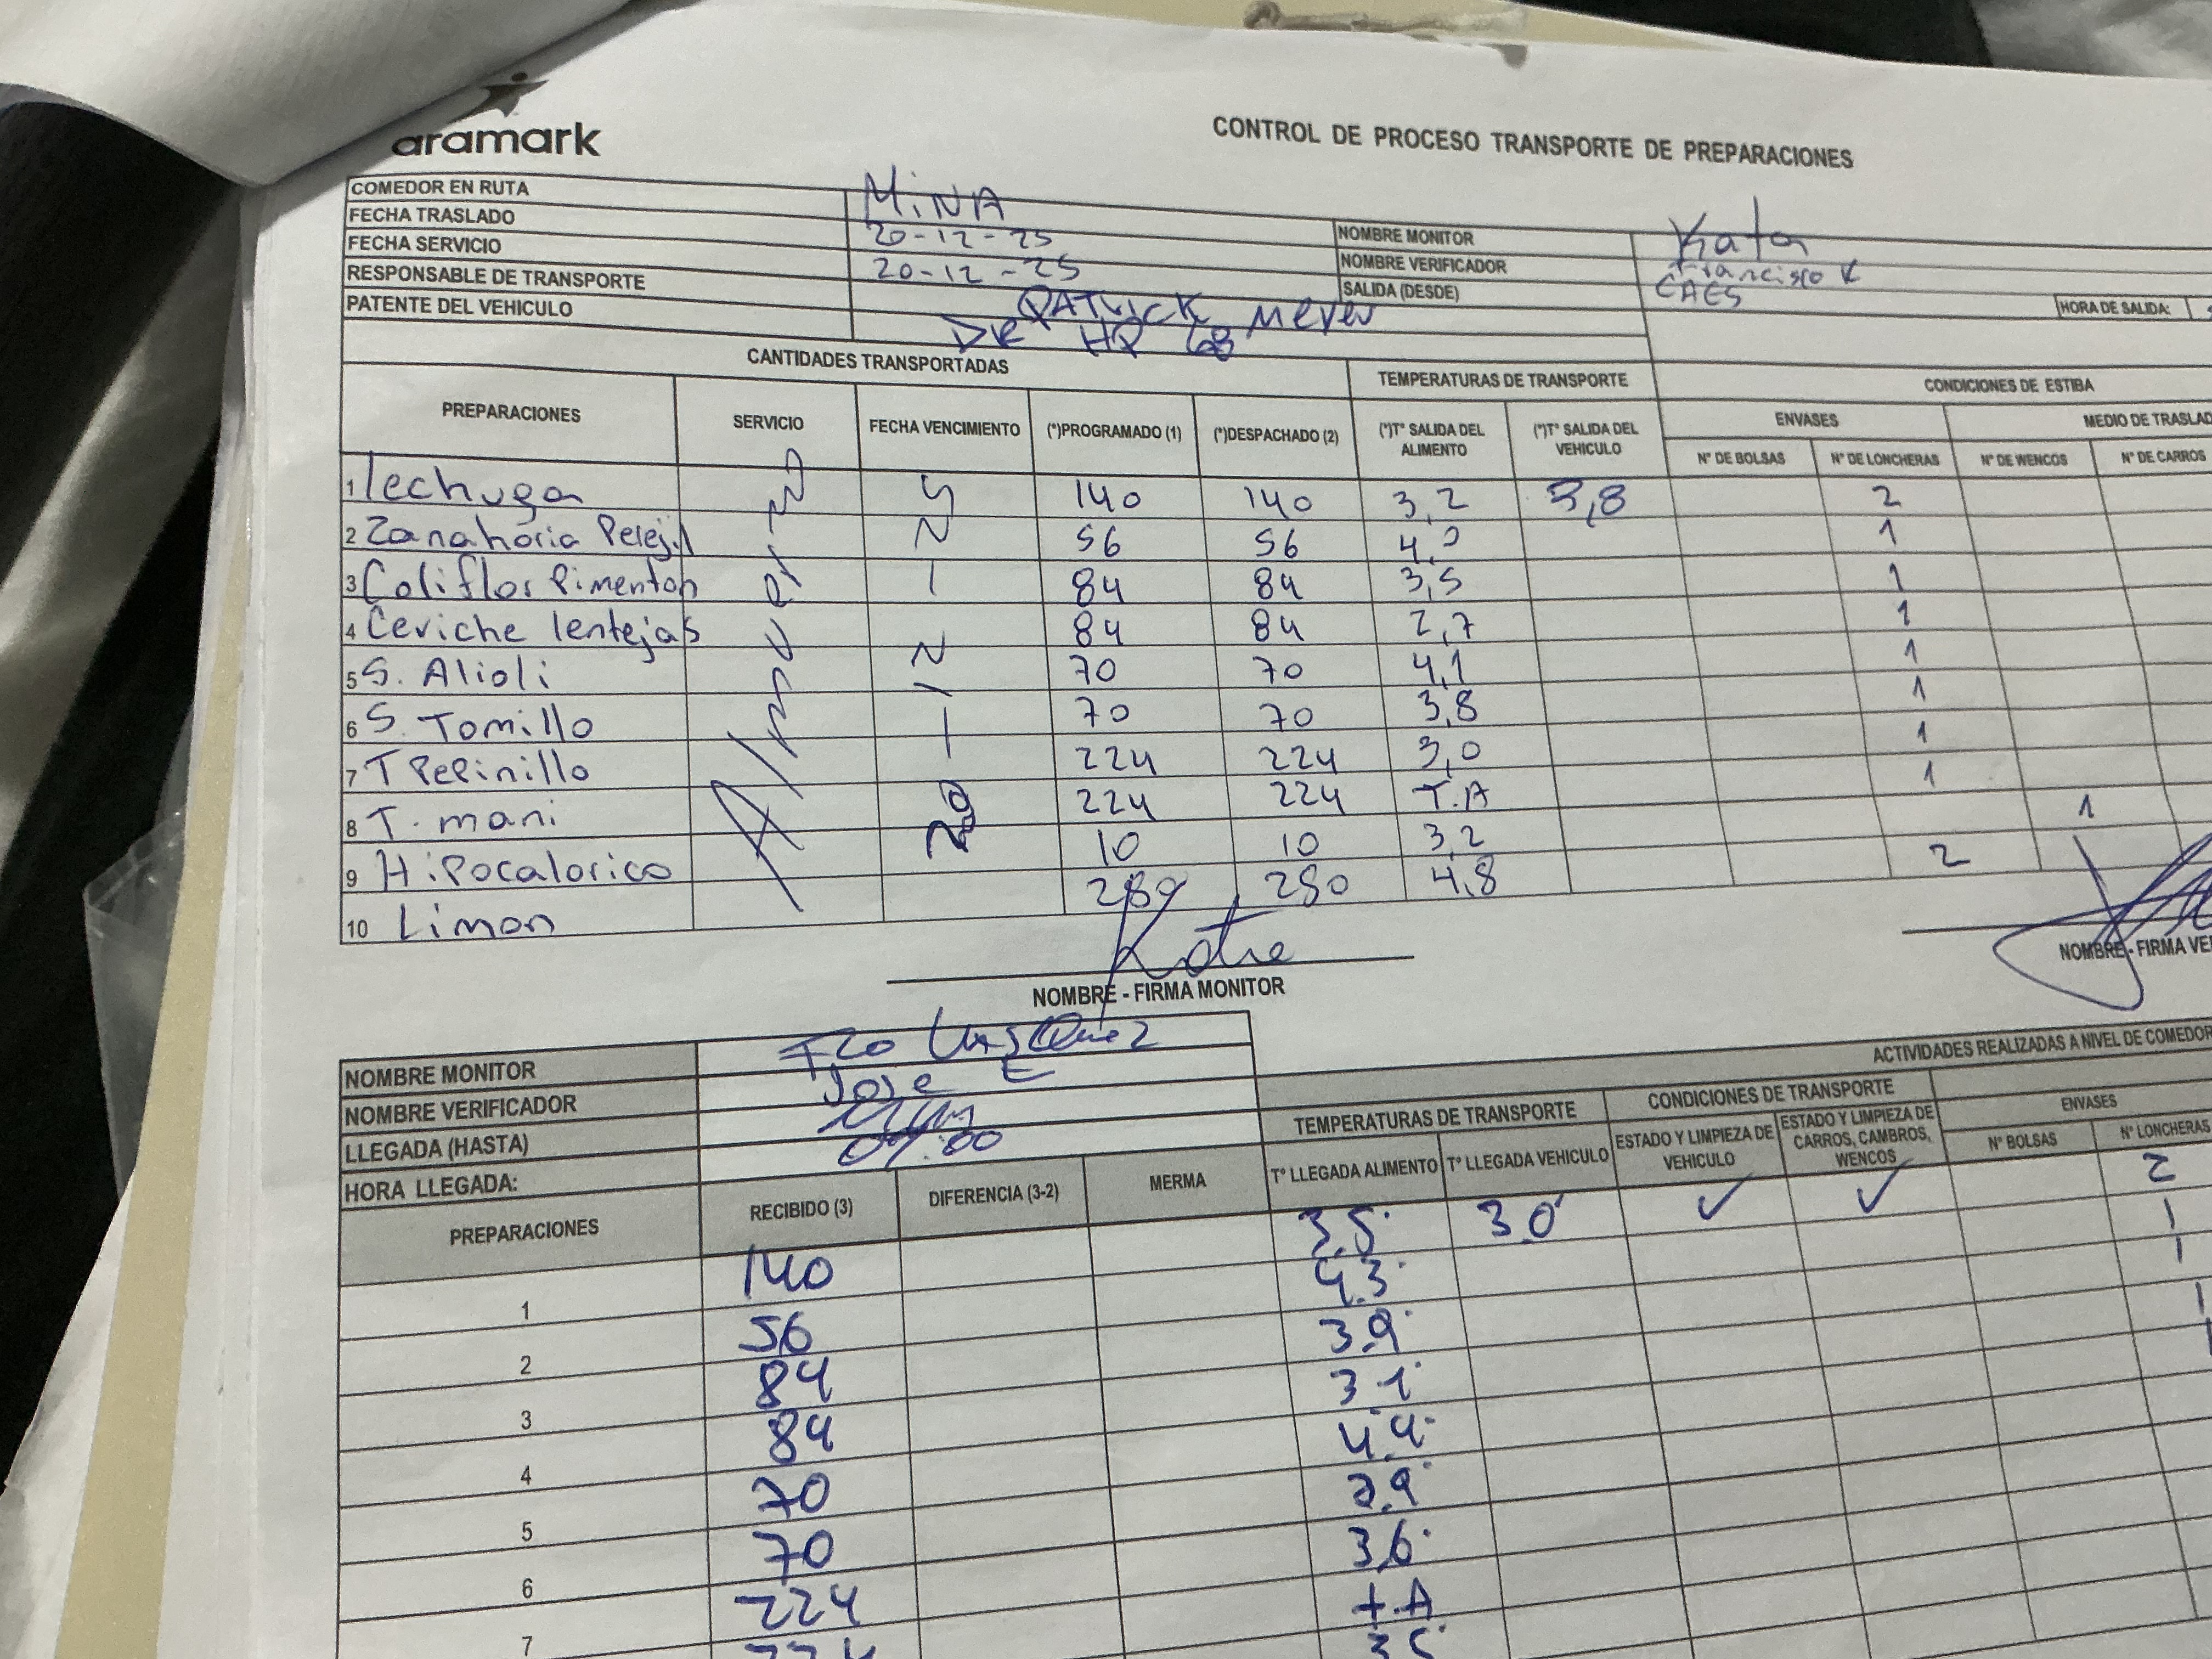 aramark
CONTROL DE PROCESO TRANSPORTE DE PREPARACIONES
COMEDOR EN RUTA MINA
FECHA TRASLADO 20-12-25 NOMBRE MONITOR Kata
FECHA SERVICIO 20-12-25 NOMBRE VERIFICADOR Francisco V
RESPONSABLE DE TRANSPORTE PATRICK Meyer SALIDA (DESDE) CAES
PATENTE DEL VEHICULO HR 68 HORA DE SALIDA:
CANTIDADES TRANSPORTADAS TEMPERATURAS DE TRANSPORTE CONDICIONES DE ESTIBA
PREPARACIONES SERVICIO FECHA VENCIMIENTO (*)PROGRAMADO (1) (*)DESPACHADO (2) (*)T° SALIDA DEL ALIMENTO (*)T° SALIDA DEL VEHICULO ENVASES MEDIO DE TRASLAD
N° DE BOLSAS N° DE LONCHERAS N° DE WENCOS N° DE CARROS
1 lechuga 140 140 3,2 3,8 2
2 Zanahoria Perejil 56 56 4,0 1
3 Coliflor Pimenton 84 84 3,5 1
4 Ceviche lentejas 84 84 2,7 1
5 S. Alioli 70 70 4,1 1
6 S. Tomillo 70 70 3,8 1
7 T Pepinillo 224 224 3,0 1
8 T. mani 224 224 T.A 1
9 Hipocalorico 10 10 3,2 1
10 Limon 280 280 4,8 2
Almuerzo
NOMBRE - FIRMA MONITOR
NOMBRE - FIRMA VE
NOMBRE MONITOR Fco Vasquez
NOMBRE VERIFICADOR Jose E
LLEGADA (HASTA)
HORA LLEGADA: 09:00
ACTIVIDADES REALIZADAS A NIVEL DE COMEDOR
TEMPERATURAS DE TRANSPORTE CONDICIONES DE TRANSPORTE ENVASES
PREPARACIONES RECIBIDO (3) DIFERENCIA (3-2) MERMA T° LLEGADA ALIMENTO T° LLEGADA VEHICULO ESTADO Y LIMPIEZA DE VEHICULO ESTADO Y LIMPIEZA DE CARROS, CAMBROS, WENCOS N° BOLSAS N° LONCHERAS
1 140 3.5° 3.0° ✓ ✓ 2
2 56 4.3° 1
3 84 3.9° 1
4 84 3.1° 1
5 70 4.4° 1
6 70 3.9°
7 224 3.6°
224 T.A